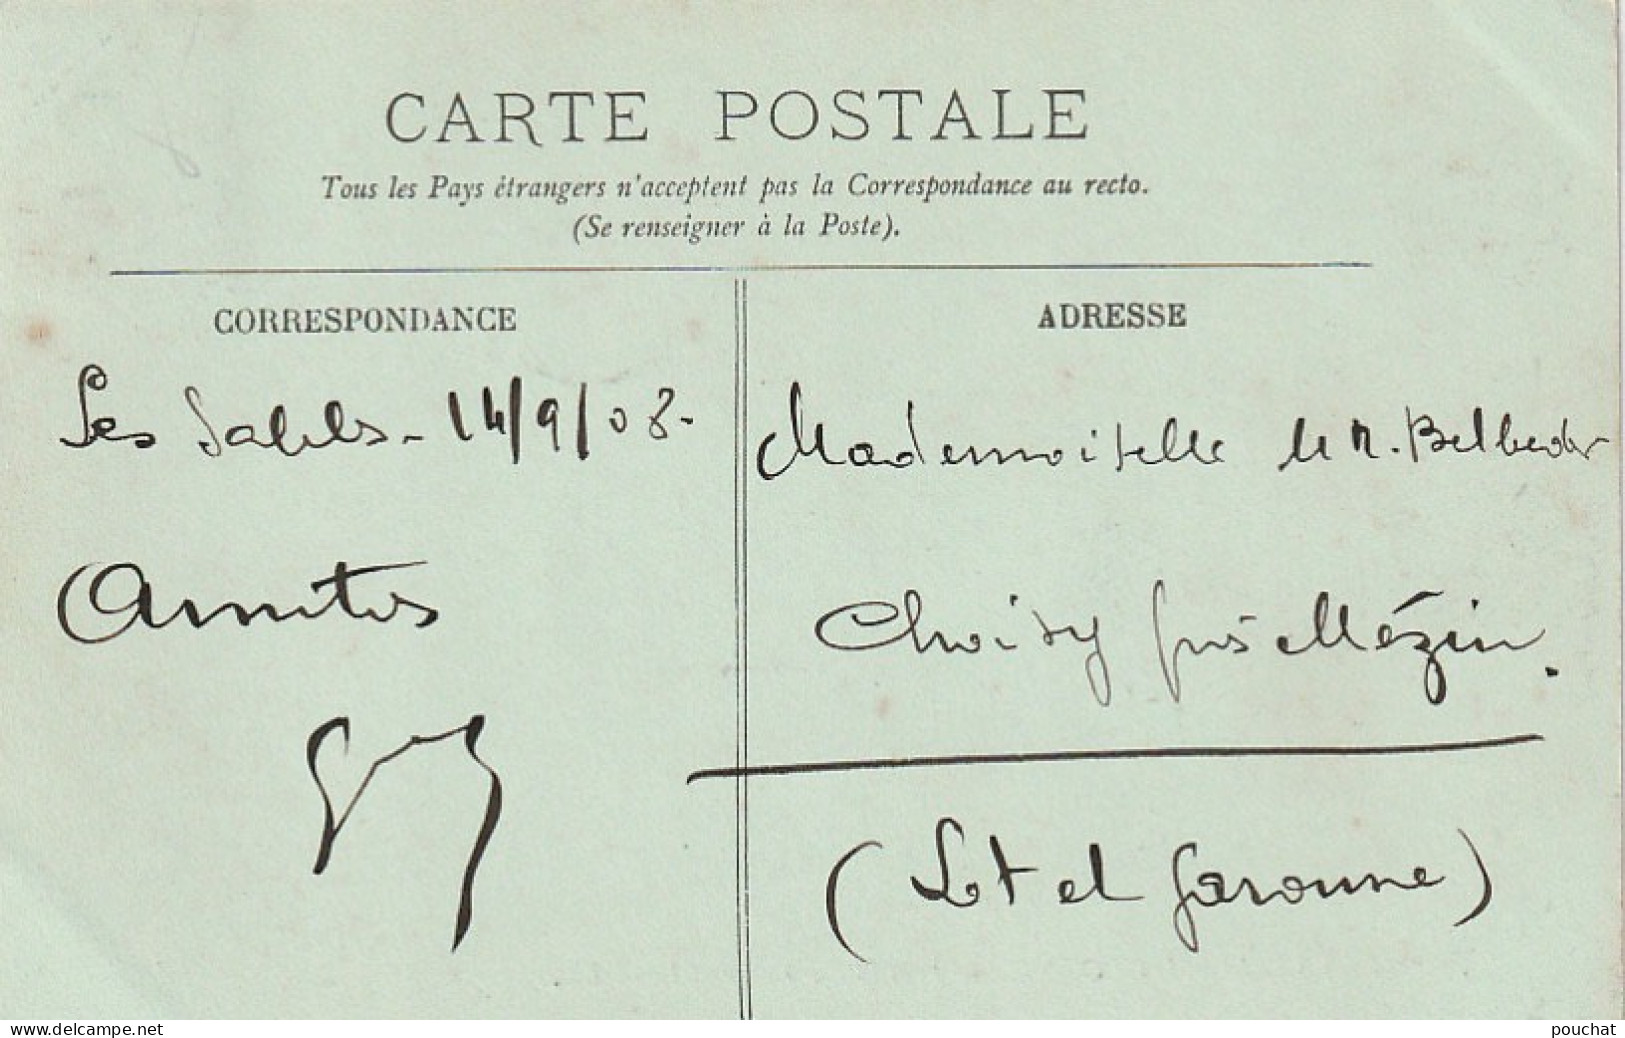 CARTE POSTALE
Tous les Pays étrangers n'acceptent pas la Correspondance au recto.
(Se renseigner à la Poste).
CORRESPONDANCE
Les Sables - 14/9/08 -
Amitiés
ADRESSE
Mademoiselle
Choisy près Mézin.
(Lot et Garonne)
www.delcampe.net
pouchat